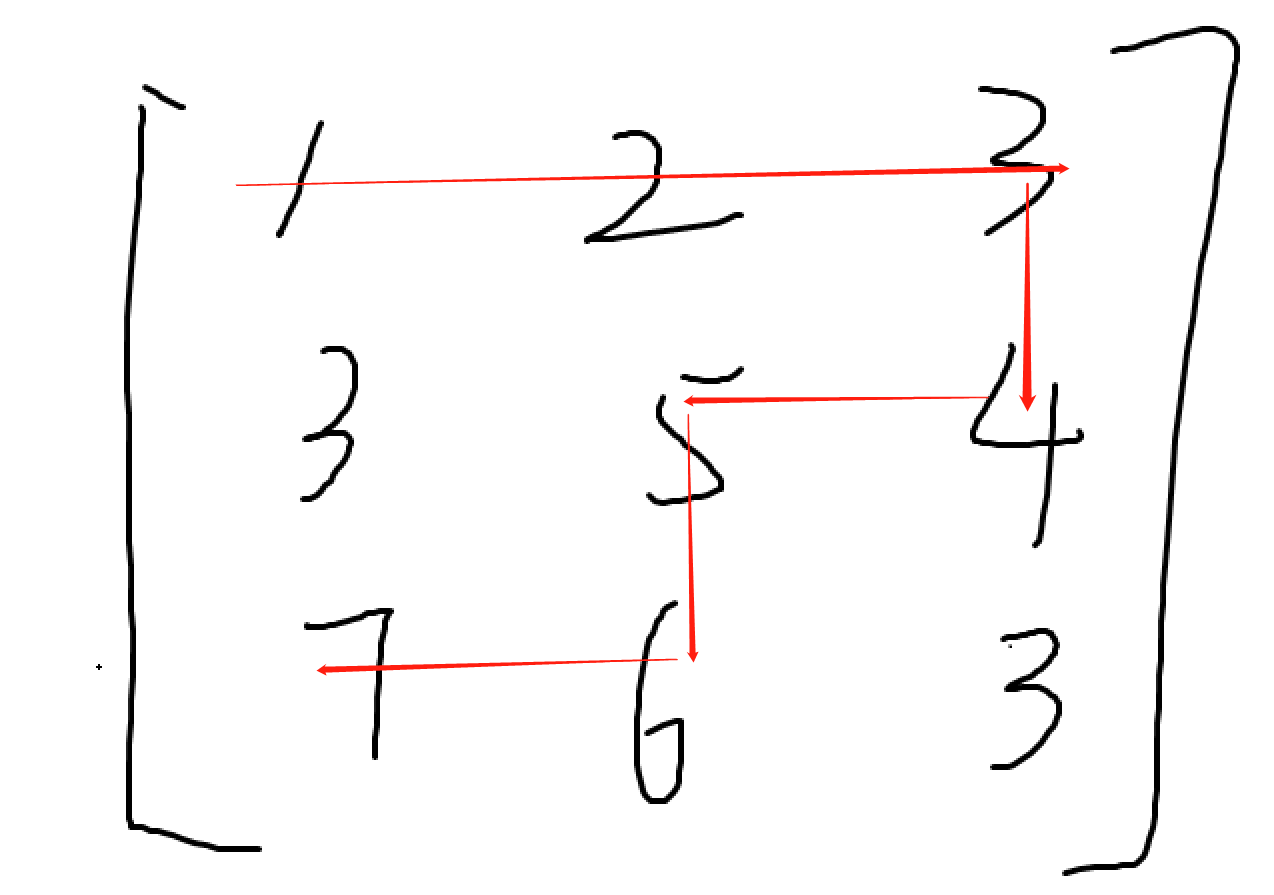 1 2 3
3 5 4
7 6 3